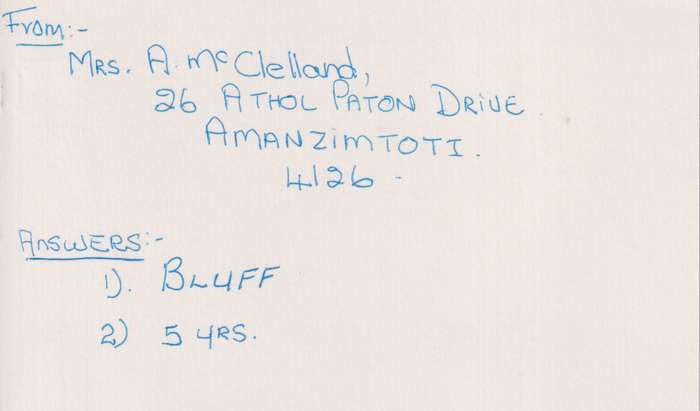 From:-
Mrs. A. McClelland,
26 Athol Paton Drive.
Amanzimtoti.
4126.
Answers:-
1). Bluff
2) 5 yrs.